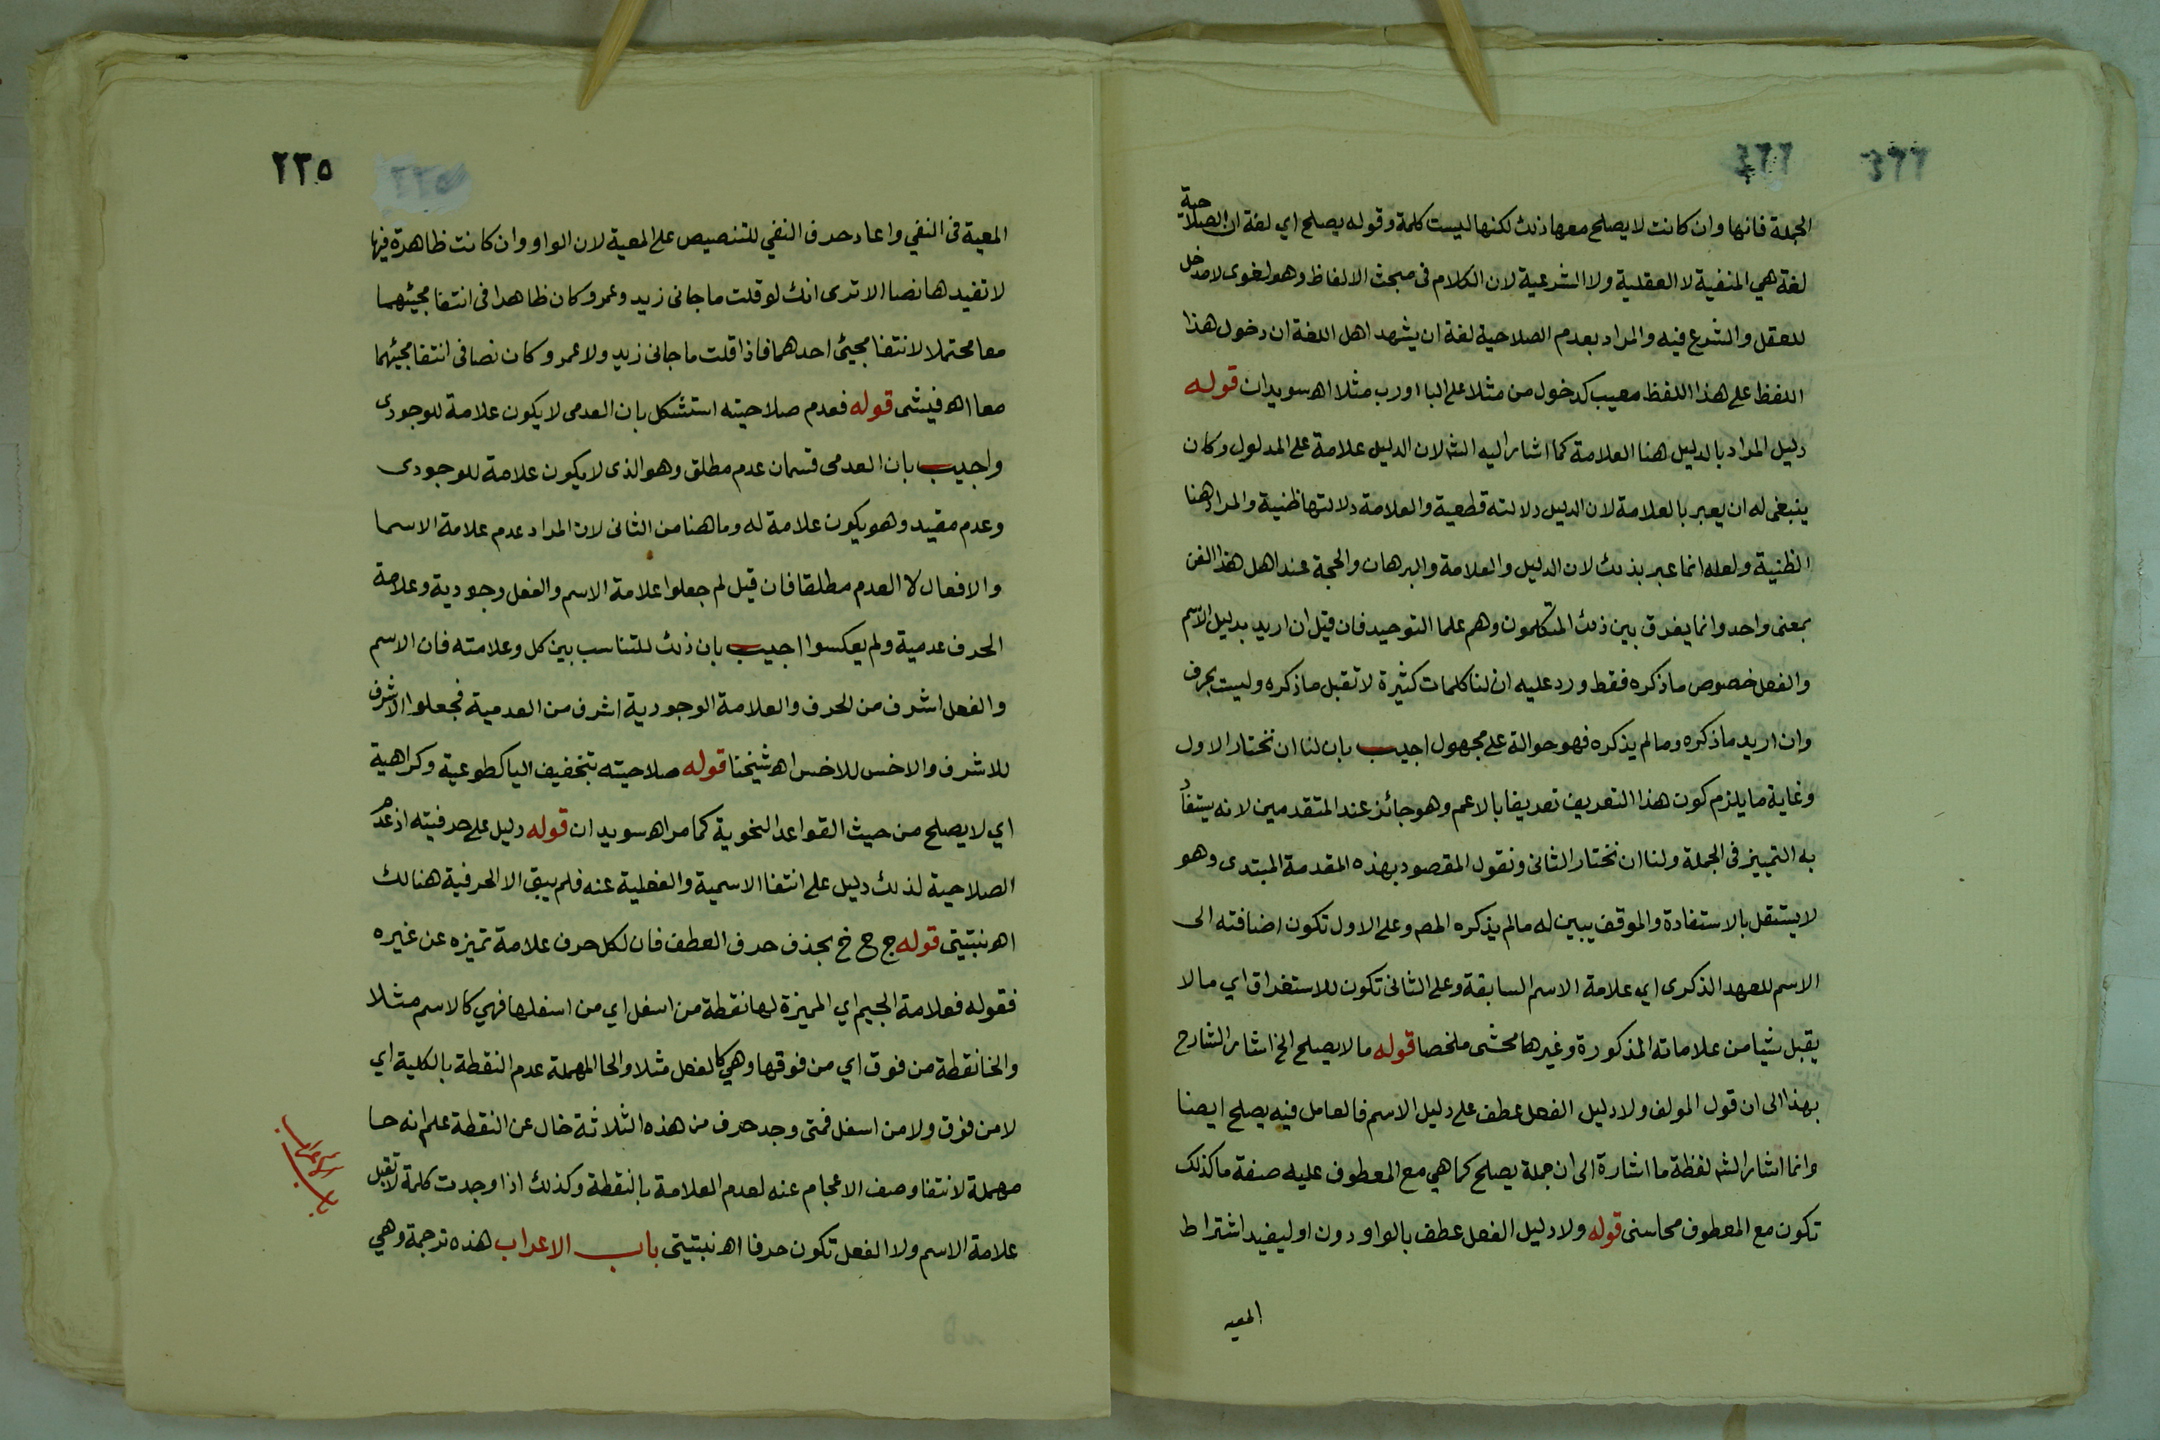 ٤٦٦
الجملة فانها وان كانت لا يصلح معها ذلك لكنها ليست كلمة وقوله يصلح اي لغة ان الصلاحية
لغة هي المنفية لا العقلية ولا الشرعية لان الكلام فى مبحث الالفاظ وهو لغوى لا مدخل
للعقل والشرع فيه والمراد بعدم الصلاحية لغة ان يشهد اهل اللغة ان دخول هذا
اللفظ على هذا اللفظ معيب كدخول من مثلا على البا اورب مثلا اهـ سويدان قوله
دليل المراد بالدليل هنا العلامة كما اشار اليه الشـ لان الدليل علامة على المدلول وكان
ينبغى له ان يعبر بالعلامة لان الدليل دلالته قطعية والعلامة دلالتها ظنية والمراد هنا
الظنية ولعله انما عبر بذلك لان الدليل والعلامة والبرهان والحجة عند اهل هذا الفن
بمعنى واحد وانما يفرق بين ذلك المتكلمون وهم علما التوحيد فان قيل ان اريد بدليل الاسم
والفعل خصوص ما ذكره فقط ورد عليه ان لنا كلمات كثيرة لا تقبل ما ذكره وليست بحرف
وان اريد ما ذكره وما لم يذكره فهو حوالة على مجهول اجيب بان لنا ان نختار الاول
وغاية ما يلزم كون هذا التعريف تعريفا بالاعم وهو جائز عند المتقدمين لانه يستفاد
به التمييز فى الجملة ولنا ان نختار الثانى ونقول المقصود بهذه المقدمة المبتدى وهو
لا يستقل بالاستفادة والموقف يبين له ما لم يذكره المص وعلى الاول تكون اضافته الى
الاسم للعهد الذكرى اي علامة الاسم السابقة وعلى الثانى تكون للاستغراق اي ما لا
يقبل شيا من علاماته المذكورة وغيرها محشى ملخصا قوله ما لا يصلح الخ اشار الشارح
بهذا الى ان قول المولف ولا دليل الفعل عطف على دليل الاسم فالعامل فيه يصلح ايضا
وانما اشار الشـ لفظة ما اشارة الى ان جملة يصلح كما هي مع المعطوف عليه صفة ما كذلك
تكون مع المعطوف محاسنى قوله ولا دليل الفعل عطف بالواو دون او ليفيد اشتراط
المعيه
٢٢٥
المعية فى النفي واعاد حرف النفي للتنصيص على المعية لان الواو وان كانت ظاهرة فيها
لا تفيدها نصا الا ترى انك لو قلت ما جانى زيد وعمرو كان ظاهرا فى انتفا مجيئهما
معا محتملا لانتفا مجيئ احدهما فاذا قلت ما جانى زيد ولا عمرو كان نصا فى انتفا مجيئهما
معا اهـ فيشى قوله فعدم صلاحيته استشكل بان العدمى لا يكون علامة للوجودى
واجيب بان العدمى قسمان عدم مطلق وهو الذى لا يكون علامة للوجودى
وعدم مقيد وهو يكون علامة له وما هنا من الثانى لان المراد عدم علامة الاسما
والافعال لا العدم مطلقا فان قيل لم جعلوا علامة الاسم والفعل وجودية وعلامة
الحرف عدمية ولم يعكسوا اجيب بان ذلك للتناسب بين كل وعلامته فان الاسم
والفعل اشرف من الحرف والعلامة الوجودية اشرف من العدمية فجعلوا الاشرف
للاشرف والاخس للاخس اهـ شيخنا قوله صلاحيته بتخفيف اليا كطوعية وكراهية
اي لا يصلح من حيث القواعد النحوية كما مر اهـ سويدان قوله دليل على حرفيته اذ عدم
الصلاحية لذلك دليل على انتفا الاسمية والفعلية عنه فلم يبق الا الحرفية هنالك
اهـ نبتيتى قوله ج ح خ بحذف حرف العطف فان لكل حرف علامة تميزه عن غيره
فقوله فعلامة الجيم اي المميزة لها نقطة من اسفل اي من اسفلها فهي كالاسم مثلا
والخا نقطة من فوق اي من فوقها وهي كالفعل مثلا والحا المهملة عدم النقطة بالكلية اي
لا من فوق ولا من اسفل فمتى وجد حرف من هذه الثلاثة خال عن النقطة علم انه حا
مهملة لانتفا وصف الاعجام عنه لعدم العلامة بالنقطة وكذلك اذا وجدت كلمة لا تقبل
علامة الاسم ولا الفعل تكون حرفا اهـ نبتيتى باب الاعراب هذه ترجمة وهي
باب الاعراب